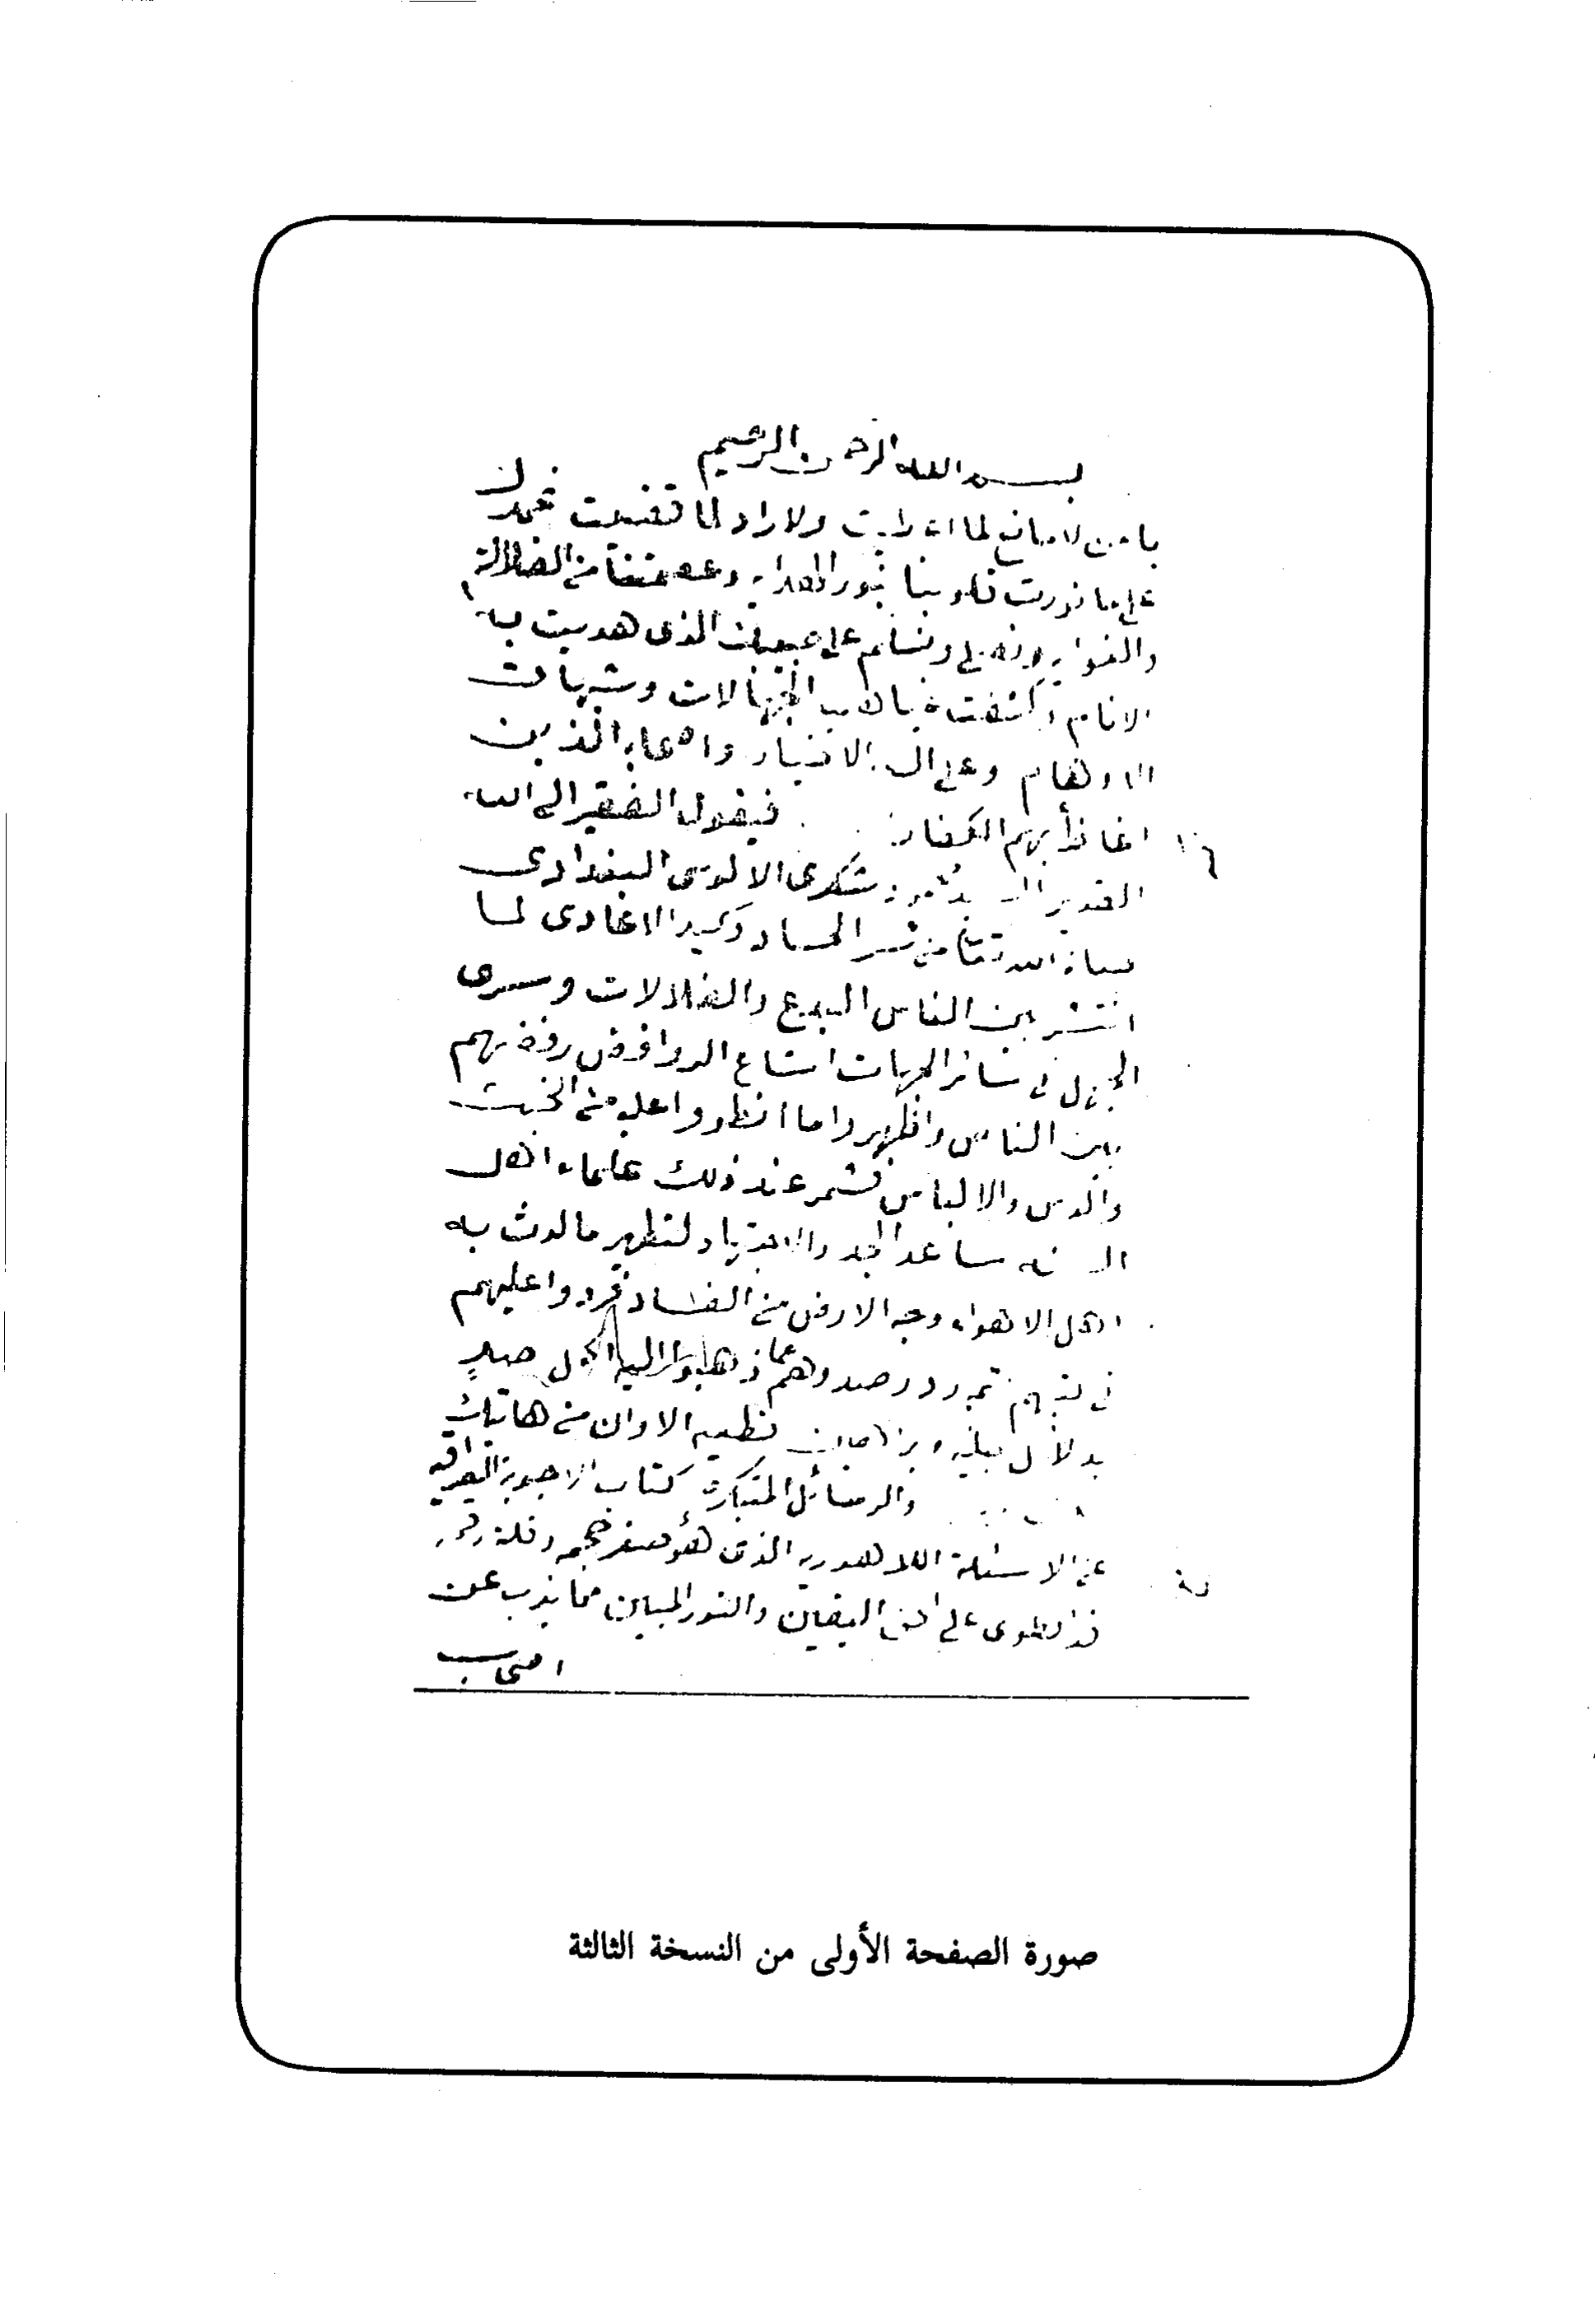 بسم الله الرحمن الرحيم
يا من لا مانع لما اعطيت ولا راد لما قضيت نحمدك
على ما نورت قلوبنا بنور الهداية وعصمتنا من الضلالة
والغواية ونصلي ونسلم على حبيبك الذى هديت به
الانام وكشفت به غياهب الجهالات وشبهات
الاوهام وعلى اله الاخيار واصحابه الذين
اغاظ بهم الكفار فيقول الفقير الى الله
القدير محمود شكرى الالوسى البغدادى
صانه الله تعالى من شر الحساد وكيد الاعادى لما
انتشر بين الناس البدع والضلالات وسرى
الجهل فى سائر الجهات اشاع الروافض رفضهم
بين الناس واظهروا ما انطووا عليه من الخبث
والدس والالباس فشمر عند ذلك علماء اهل
السنه ساعد الجد والاجتهاد لتطهير ما لوث به
اهل الاهواء وجه الارض من الفساد فردوا عليهم
فى كتبهم وصدوهم عما ذهبوا اليه اكمل صد
بدلائل من هاتيك
والرسائل المبتكرة كتاب الاجوبة العراقيه
عن الاسئلة اللاهوريه الذى هو مع صغر حجمه وقلة
قد انطوى على الحق اليقين والنور المبين مما يذب عن
اصحاب
صورة الصفحة الأولى من النسخة الثالثة